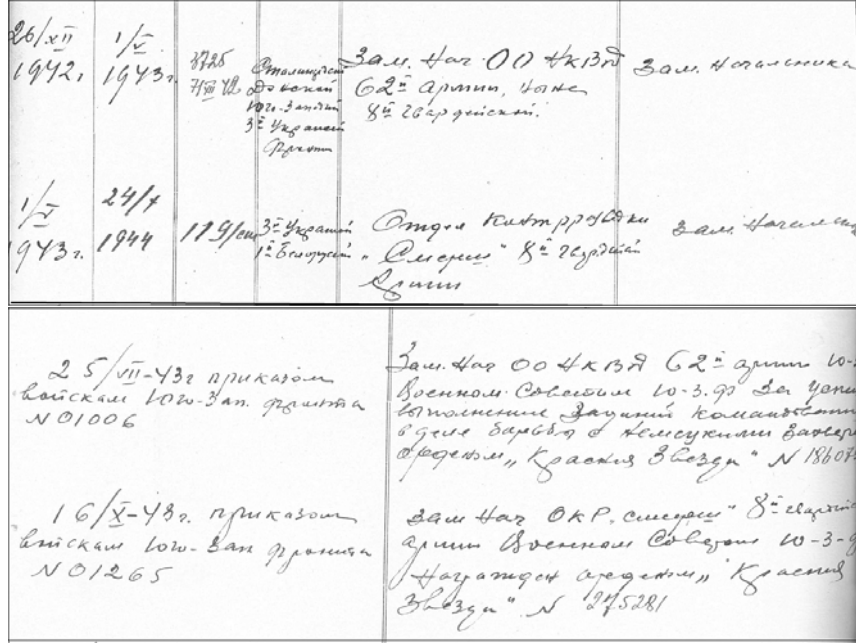 26/XII 1942г.
1/V 1943г.
3725
7/XII 42
Сталинградский
Донской
Юго-Западный
3й Украинский
фронт
Зам. Нач. ОО НКВД
62й армии, ныне
8й гвардейской.
Зам. Начальника
1/V 1943г.
24/X 1944
119/сш
3й Украинский
1й Белорусский
Отдел контрразведки
„Смерш" 8й гвардейской
Армии
Зам. Начальника
25/VII-43г приказом
войскам Юго-Зап. фронта
N 01006
Зам. Нач ОО НКВД 62й армии Ю-
Военном Советом Ю-З.Ф за
выполнение заданий командования
в деле борьбы с немецкими
орденом „Красная Звезда" N
16/X-43г. приказом
войскам Юго-Зап фронта
N 01265
Зам Нач ОКР „Смерш" 8й
армии Военном Советом Ю-З-
Награжден орденом „Красная
Звезда" N 275281